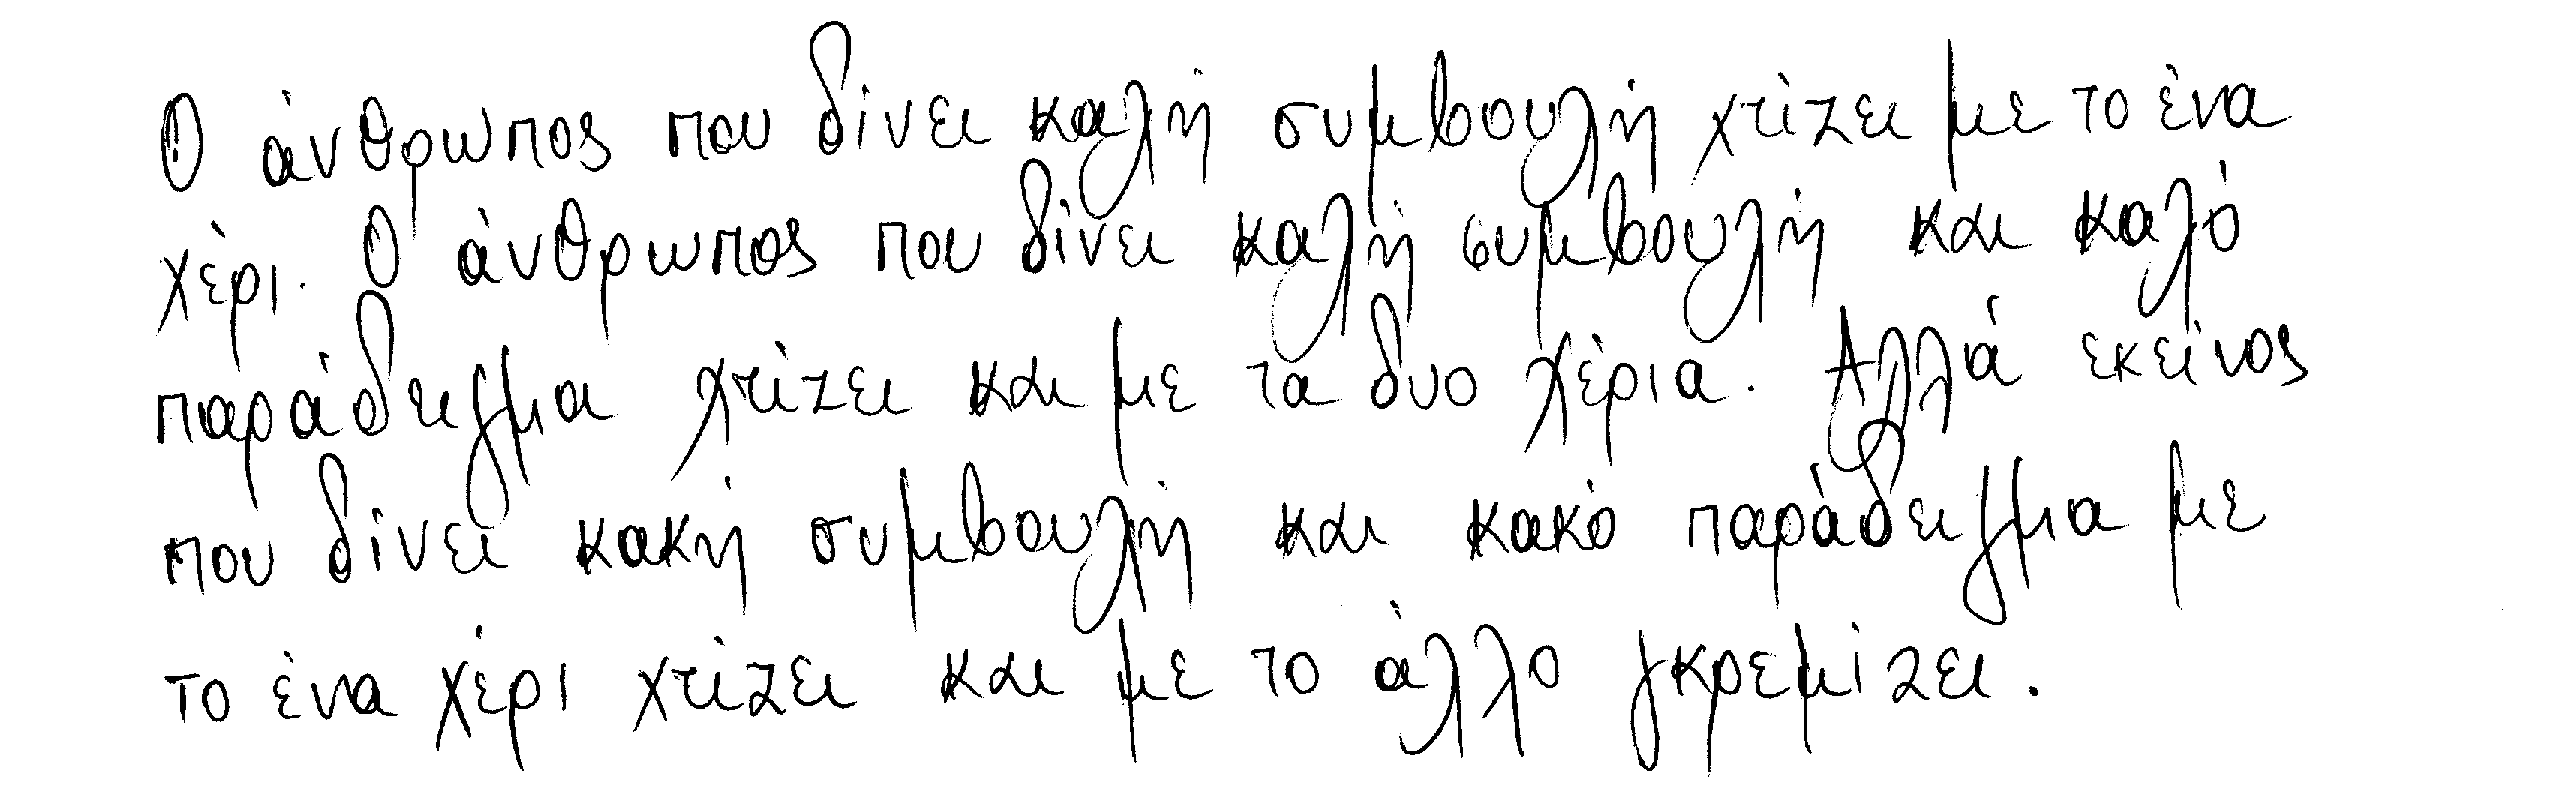 Ο άνθρωπος που δίνει καλή συμβουλή χτίζει με το ένα
χέρι. Ο άνθρωπος που δίνει καλή συμβουλή και καλό
παράδειγμα χτίζει και με τα δυο χέρια. Αλλά εκείνος
που δίνει κακή συμβουλή και κακό παράδειγμα με
το ένα χέρι χτίζει και με το άλλο γκρεμίζει.